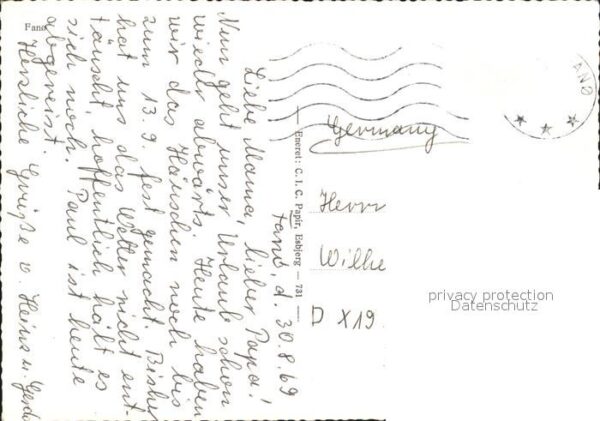 Fanø
Fanø, d. 30.8.69
Liebe Mama, lieber Papa!
Nun geht unser Urlaub schon
wieder abwärts. Heute haben
wir das Häuschen noch bis
zum 13.9. fest gemacht. Bisher
hat uns das Wetter nicht ent-
täuscht, hoffentlich hält es
sich noch. Paul ist heute
abgereist.
Herzliche Grüße v. Heinz u. Gerda
Eneret: C. I. C. Papir, Esbjerg — 731
Germany
Herrn
Wilhe
D X19
privacy protection
Datenschutz